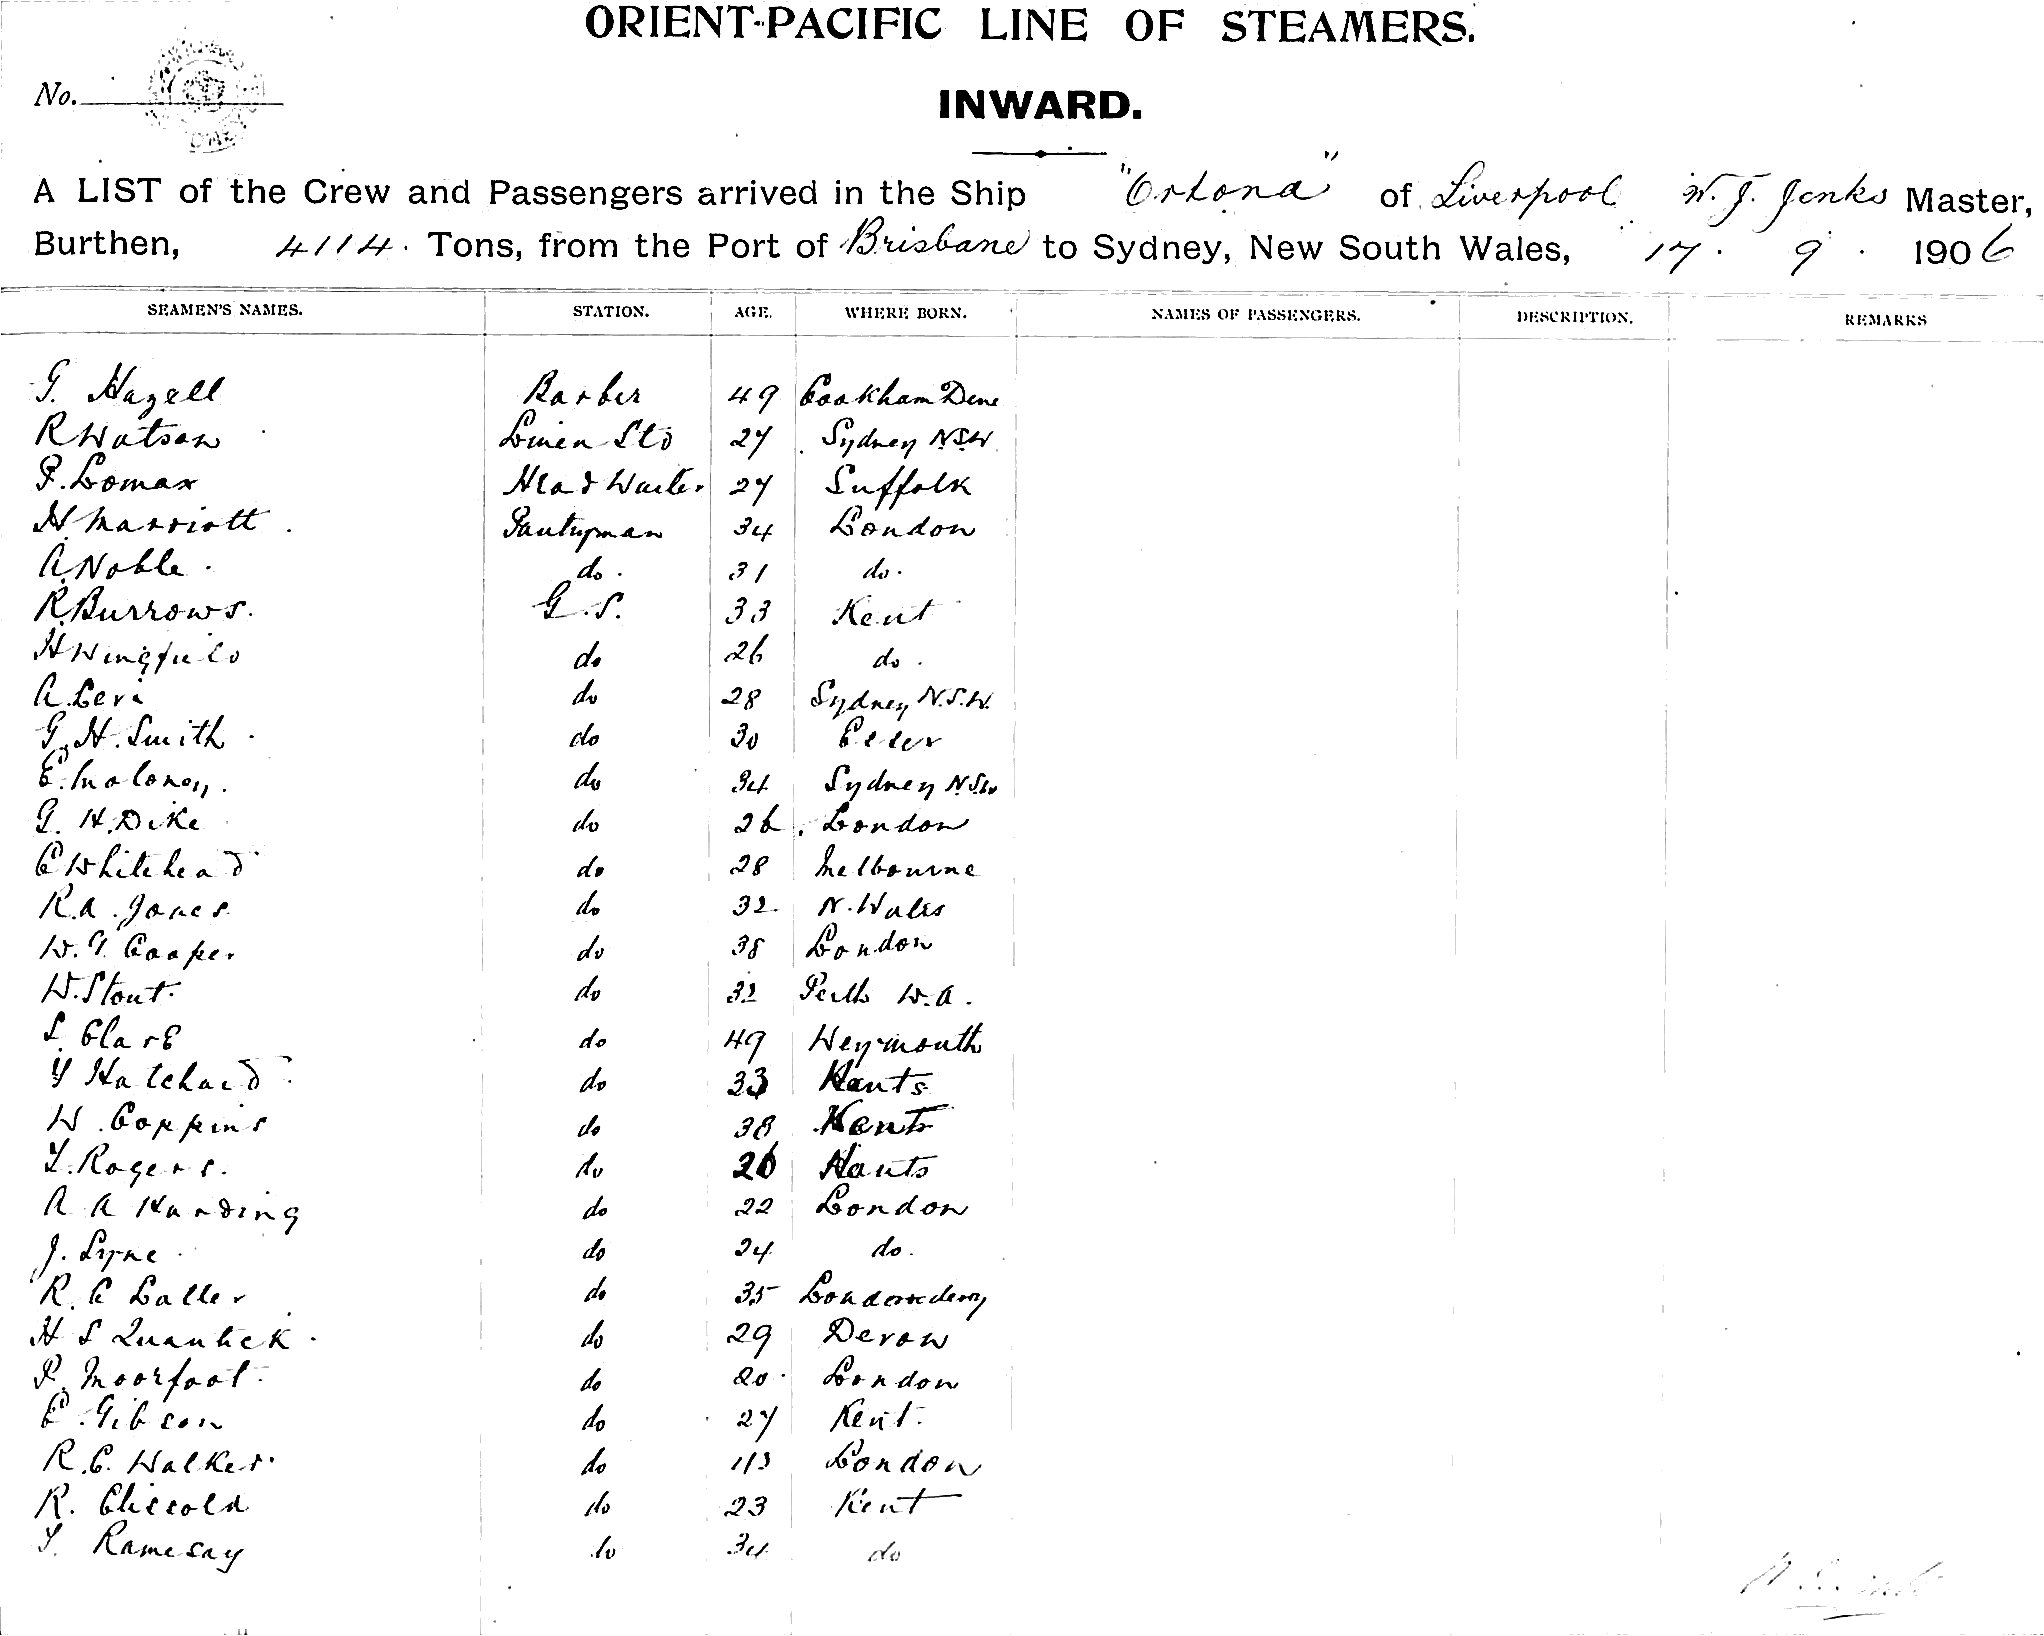 ORIENT-PACIFIC LINE OF STEAMERS.
No.
INWARD.
A LIST of the Crew and Passengers arrived in the Ship "Ortona" of Liverpool W. J. Jenks Master,
Burthen, 4114. Tons, from the Port of Brisbane to Sydney, New South Wales, 17. 9. 1906
SEAMEN'S NAMES. STATION. AGE. WHERE BORN. NAMES OF PASSENGERS. DESCRIPTION. REMARKS
G. Hazell Barber 49 Cookham Dene
R Watson Linen Std 27 Sydney NSW
P. Lomax Head Waiter 27 Suffolk
H. Marriott Pantryman 34 London
A. Noble do. 31 do.
R. Burrows. G.S. 33 Kent
H Wingfield do 26 do.
A. Levi do 28 Sydney N.S.W.
G. H. Smith do 30
E. Moloney. do 34 Sydney NSW
G. H. Dike do 26 London
C Whitehead do 28 Melbourne
R. A. Jones do 32 N. Wales
W. G Cooper do 38 London
W. Stout. do 32 Perth W.A.
S. Clark do 49 Weymouth
Hatchard do 33 Hants
W. Coppins do 38 Kent
T. Rogers. do 26 Hants
A A Harding do 22 London
J. Lyne do 24 do.
R. C Laller do 35 Londonderry
H S Quantick do 29 Devon
P. Moorfoot. do 20 London
E. Gibson do 27 Kent.
R. C. Walker do London
R. Clissold do 23 Kent
T. Ramesay do 34 do